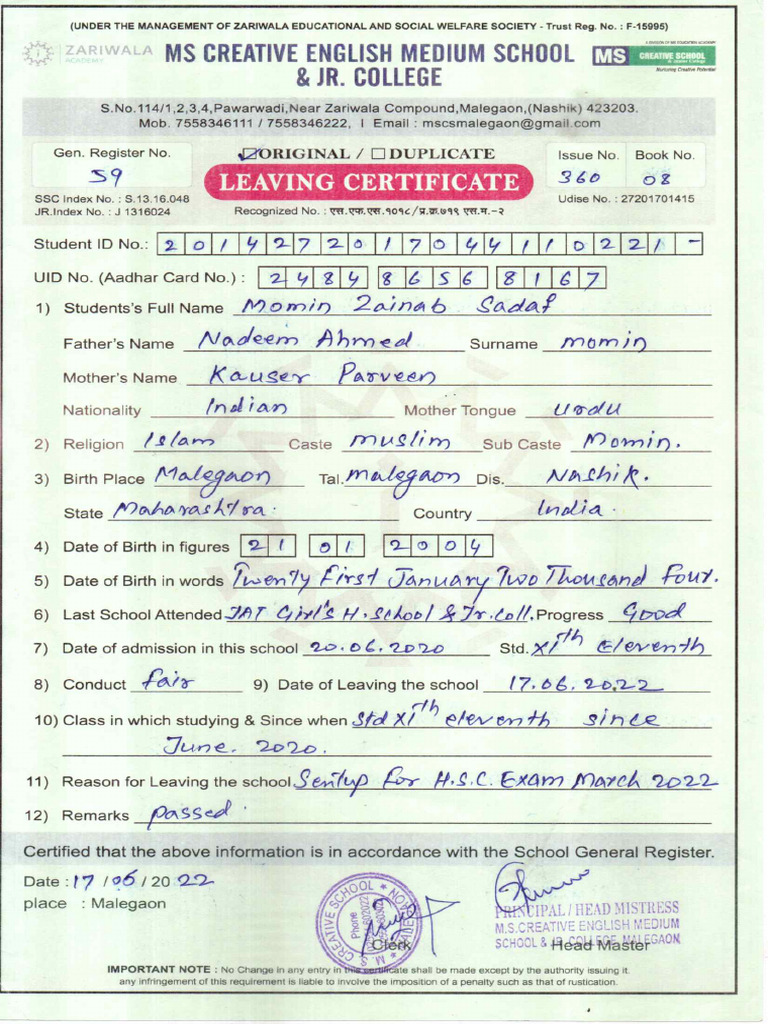 (UNDER THE MANAGEMENT OF ZARIWALA EDUCATIONAL AND SOCIAL WELFARE SOCIETY - Trust Reg. No. : F-15995)
ZARIWALA
ACADEMY
MS CREATIVE ENGLISH MEDIUM SCHOOL
& JR. COLLEGE
A DIVISION OF MS EDUCATION ACADEMY
MS CREATIVE SCHOOL
& Junior College
Nurturing Creative Potential
S.No.114/1,2,3,4,Pawarwadi,Near Zariwala Compound,Malegaon,(Nashik) 423203.
Mob. 7558346111 / 7558346222, I Email : mscsmalegaon@gmail.com
Gen. Register No. 59
ORIGINAL / DUPLICATE
Issue No. 360 Book No. 08
LEAVING CERTIFICATE
SSC Index No. : S.13.16.048
JR.Index No. : J 1316024
Recognized No. : एस.एफ.एस.१०१८/प्र.क्र.७१९ एस.म.-२
Udise No. : 27201701415
Student ID No.: 2014272017044110221-
UID No. (Aadhar Card No.) : 2484 8656 8167
1) Students's Full Name Momin Zainab Sadaf
Father's Name Nadeem Ahmed Surname momin
Mother's Name Kauser Parveen
Nationality Indian Mother Tongue urdu
2) Religion Islam Caste muslim Sub Caste Momin.
3) Birth Place Malegaon Tal. malegaon Dis. Nashik.
State Maharashtra. Country India.
4) Date of Birth in figures 21 01 2004
5) Date of Birth in words Twenty First January Two Thousand Four.
6) Last School Attended JAT Girl's H.school & Jr.coll. Progress Good
7) Date of admission in this school 20.06.2020 Std. XIth Eleventh
8) Conduct fair 9) Date of Leaving the school 17.06.2022
10) Class in which studying & Since when Std XIth eleventh since
June. 2020.
11) Reason for Leaving the school Sentup for H.S.C. Exam March 2022
12) Remarks passed.
Certified that the above information is in accordance with the School General Register.
Date : 17 / 06 / 20 22
place : Malegaon
M. S. CREATIVE SCHOOL * MALEGAON *
Phone
Clerk
PRINCIPAL / HEAD MISTRESS
M.S.CREATIVE ENGLISH MEDIUM
SCHOOL & JR. COLLEGE, MALEGAON
Head Master
IMPORTANT NOTE : No Change in any entry in this certificate shall be made except by the authority issuing it.
any infringement of this requirement is liable to involve the imposition of a penalty such as that of rustication.